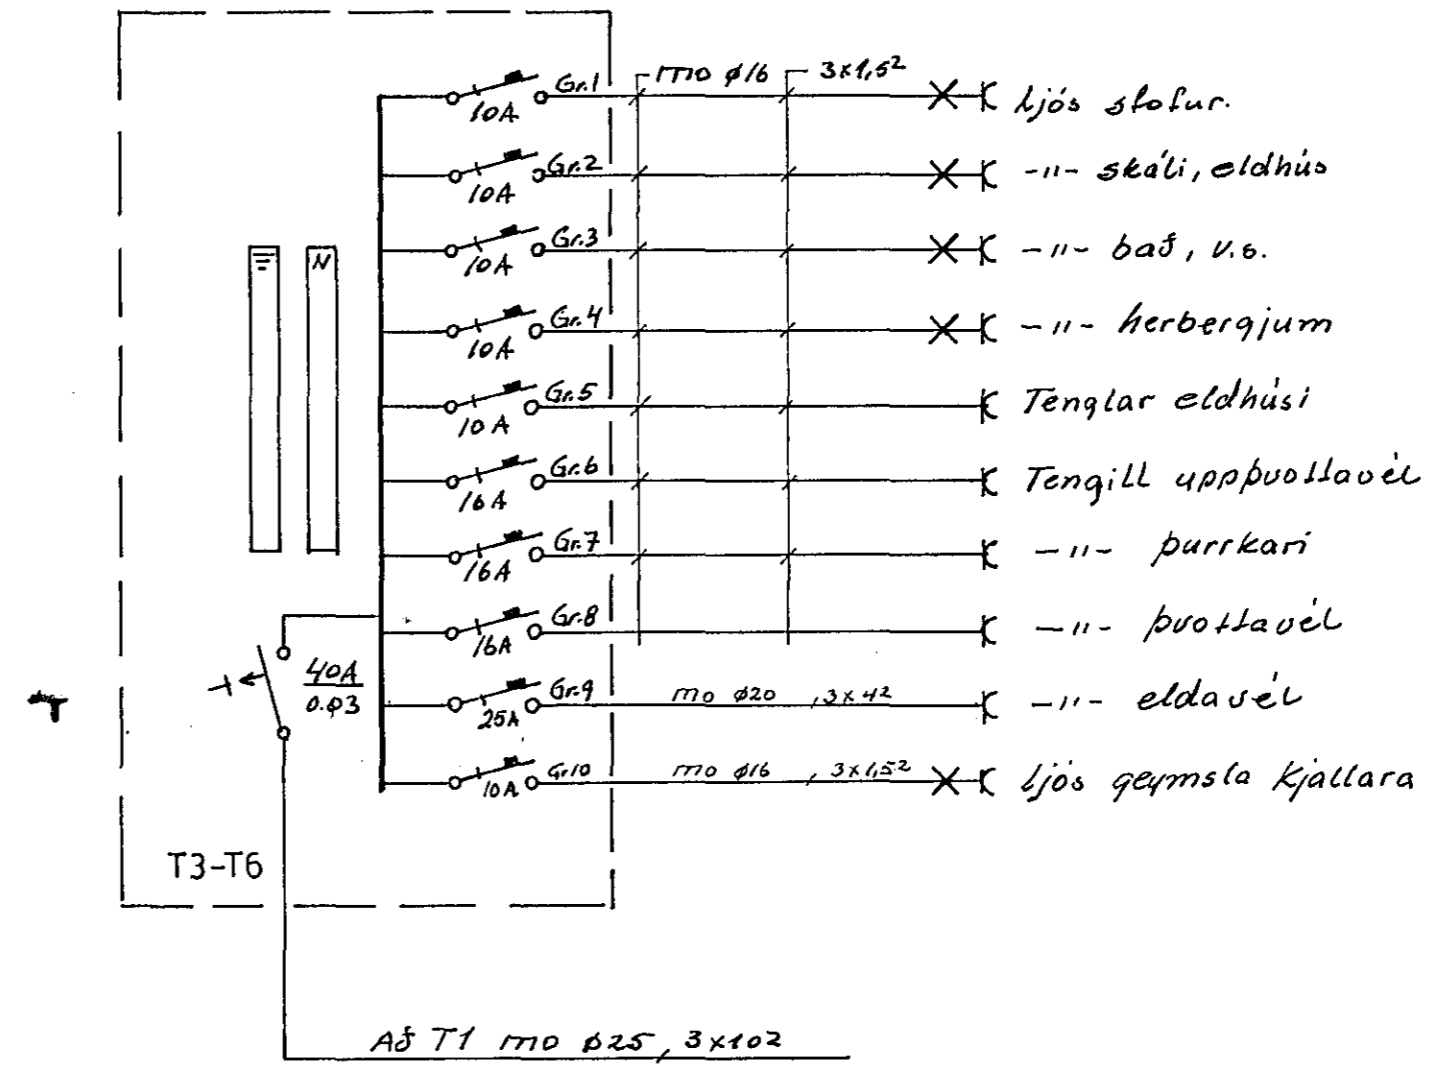 Gr.1 mo ø16 3x1,5² Ljós stofur.
10A
Gr.2 -"- skáli, eldhús
10A
Gr.3 -"- bað, v.s.
10A
N
Gr.4 -"- herbergjum
10A
Gr.5 Tenglar eldhúsi
10A
Gr.6 Tengill uppþvottavél
16A
Gr.7 -"- þurrkari
16A
Gr.8 -"- þvottavél
16A
40A
0.03
Gr.9 mo ø20, 3x4² -"- eldavél
25A
Gr.10 mo ø16, 3x1,5² Ljós geymsla kjallara
10A
T3-T6
Að T1 mo ø25, 3x10²